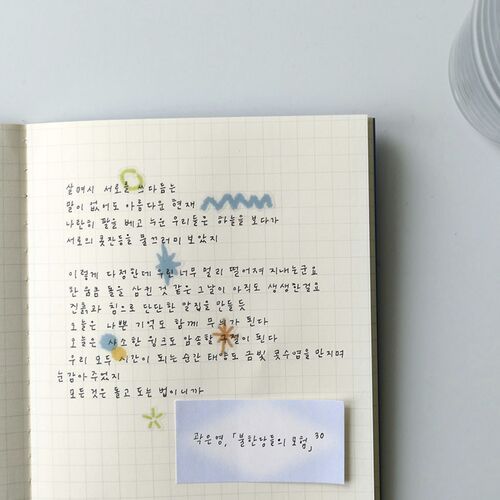 살며시 서로를 쓰다듬는
말이 없어도 아름다운 현재
나란히 팔을 베고 누운 우리들은 하늘을 보다가
서로의 콧잔등을 물끄러미 보았지
이렇게 다정한데 우린 너무 멀리 떨어져 지내는군요
한 움큼 돌을 삼킨 것 같은 그날이 아직도 생생한걸요
진흙과 침으로 단단한 알집을 만들듯
오늘은 나쁜 기억도 함께 무늬가 된다
오늘은 사소한 윙크도 암송할 구절이 된다
우리 모두 시간이 되는 순간 태양도 금빛 콧수염을 만지며
눈감아 주었지
모든 것은 돌고 도는 법이니까
곽은영, 「불한당들의 모험」 30